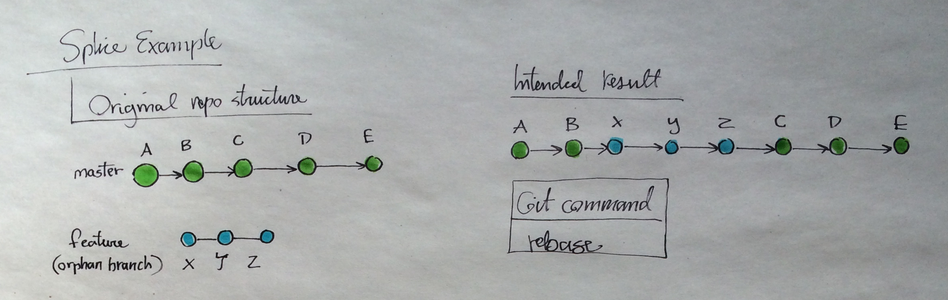 Splice Example
Original repo structure
A B C D E
master
feature
(orphan branch) X Y Z
Intended result
A B X Y Z C D E
Git command
rebase